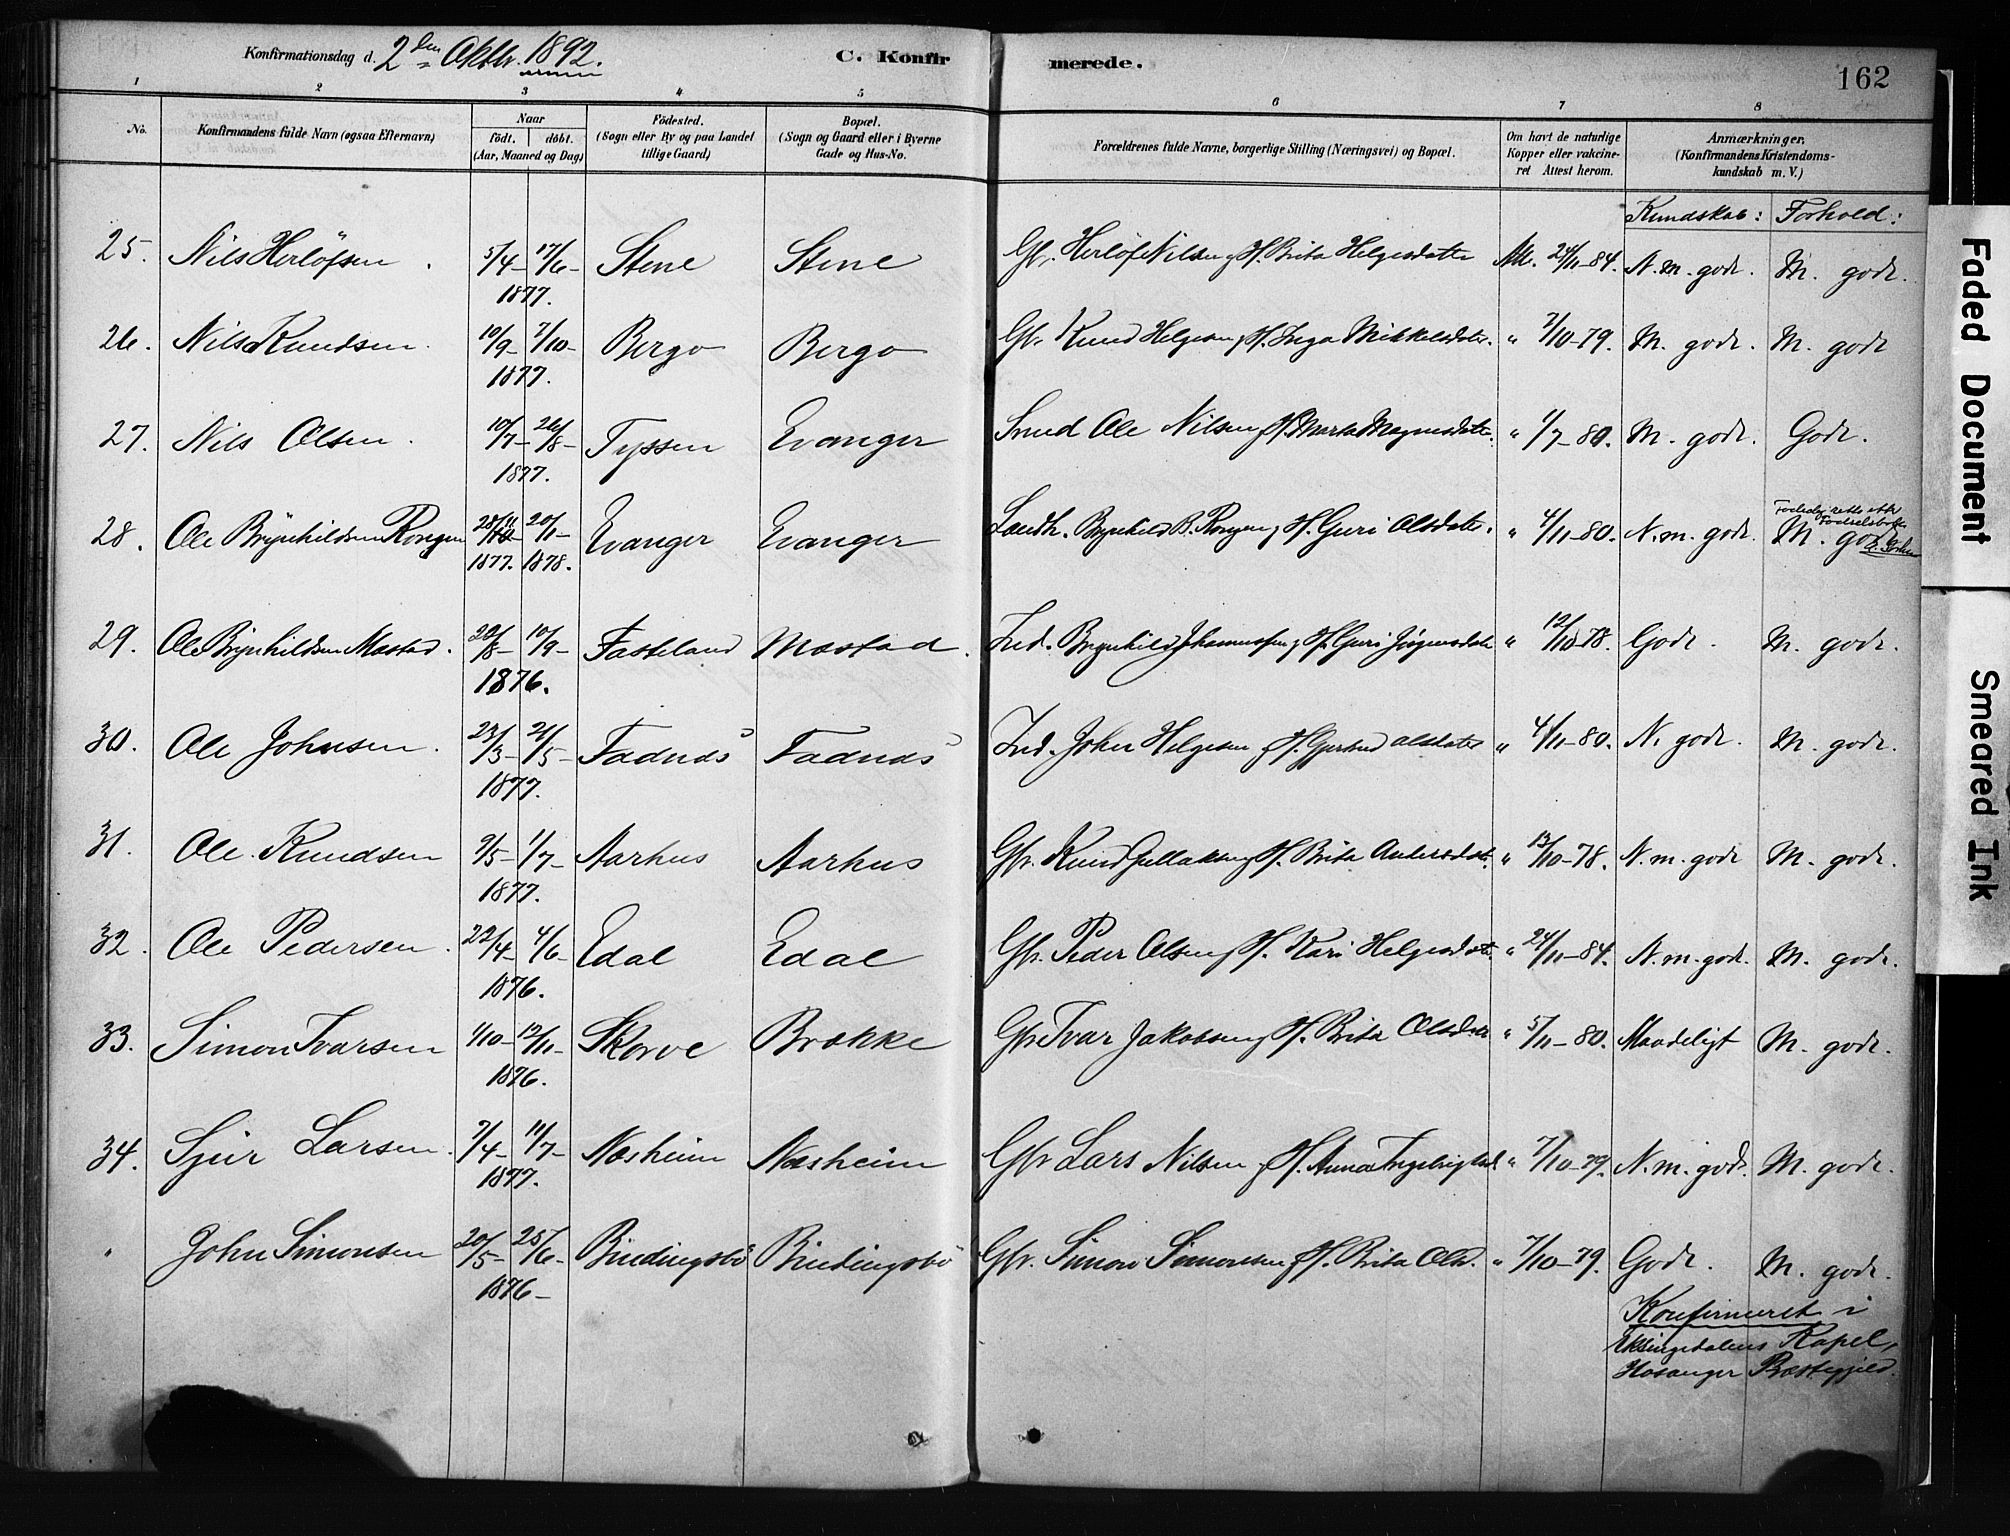 Konfirmationsdag d. 2den Oktbr. 1892.
C. Konfirmerede.
162
1 2 3 4 5 6 7 8
No.
Konfirmandens fulde Navn (ogsaa Efternavn)
Naar
født. døbt.
(Aar, Maaned og Dag)
Fødested.
(Sogn eller By og paa Landet
tillige Gaard)
Bopæl.
(Sogn og Gaard eller i Byerne
Gade og Hus-No.
Forældrenes fulde Navne, borgerlige Stilling (Næringsvei) og Bopæl.
Om havt de naturlige
Kopper eller vakcine-
ret Attest herom.
Anmærkninger.
(Konfirmandens Kristendoms-
kundskab m. V.)
Kundskab: Forhold:
25. Nils Herlöfsen. 5/4 - 17/6 - 1877. Stene Stene Gbr. Herlöf Nilsen, H. Brita Helgesdatter Att. 24/11-84. N. m. godt. M. godt.
26. Nils Knudsen. 10/9 - 7/10 - 1877. Bergo Bergo Gbr. Knud Helgesen, H. Inga Mikkelsdatter. " 7/10-79. M. godt. M. godt
27. Nils Olsen. 10/7 - 26/8 - 1877. Tyssen Evanger Smed Ole Nilsen, H. Marta Magnesdatter. " 1/7-80. M. godt. Godt.
28. Ole Brynhildsen Rongen 1877. 20/1 - 1878. Evanger Evanger Landh. Brynhild B. Rongen, H. Guri Olsdatter. " 4/11-80. N. m. godt. M. godt
29. Ole Brynhildsen Mæstad. 20/8 - 10/9 - 1876. Fasteland Mæstad. Ind. Brynhild Johannessen, H. Guri Jörgensdatter " 12/10-78. Godt. M. godt.
30. Ole Johnsen. 23/3 - 21/5 - 1877. Fadnæs Fadnæs Ind. John Helgesen, H. Gjertrud Olsdatter " 4/11-80. N. godt. M. godt.
31. Ole Knudsen 9/5 - 1/7 - 1877. Aarhus Aarhus Gbr. Knud Gullaksen, H. Brita Andersdat. " 13/10-78. N. m. godt M. godt.
32. Ole Pedersen. 22/4 - 4/6 - 1876. Edal Edal Gbr. Peder Olsen, H. Kari Helgesdat. " 24/11-84. N. m. godt. M. godt.
33. Simon Ivarsen 1/10 - 12/11 - 1876. Skorve Brække Gbr Ivar Jakobsen, H. Brita Olsdatr " 5/11-80. Maadeligt M. godt.
34. Sjur Larsen. 7/4 - 11/7 - 1877. Næsheim Næsheim Gbr Lars Nilsen, H. Anna Ingebrigtsd. " 7/10-79. N. m. godt. M. godt.
" John Simonsen 20/5 - 25/6 - 1876 - Bindingsbö Bindingsbö Gbr. Simon Simonsen, H. Brita Olsd. " 7/10-79. Godt. M. godt.
Konfirmeret i
Eksingedalens Kapel,
Hosanger Præstegjeld.
Faded Document
Smeared Ink